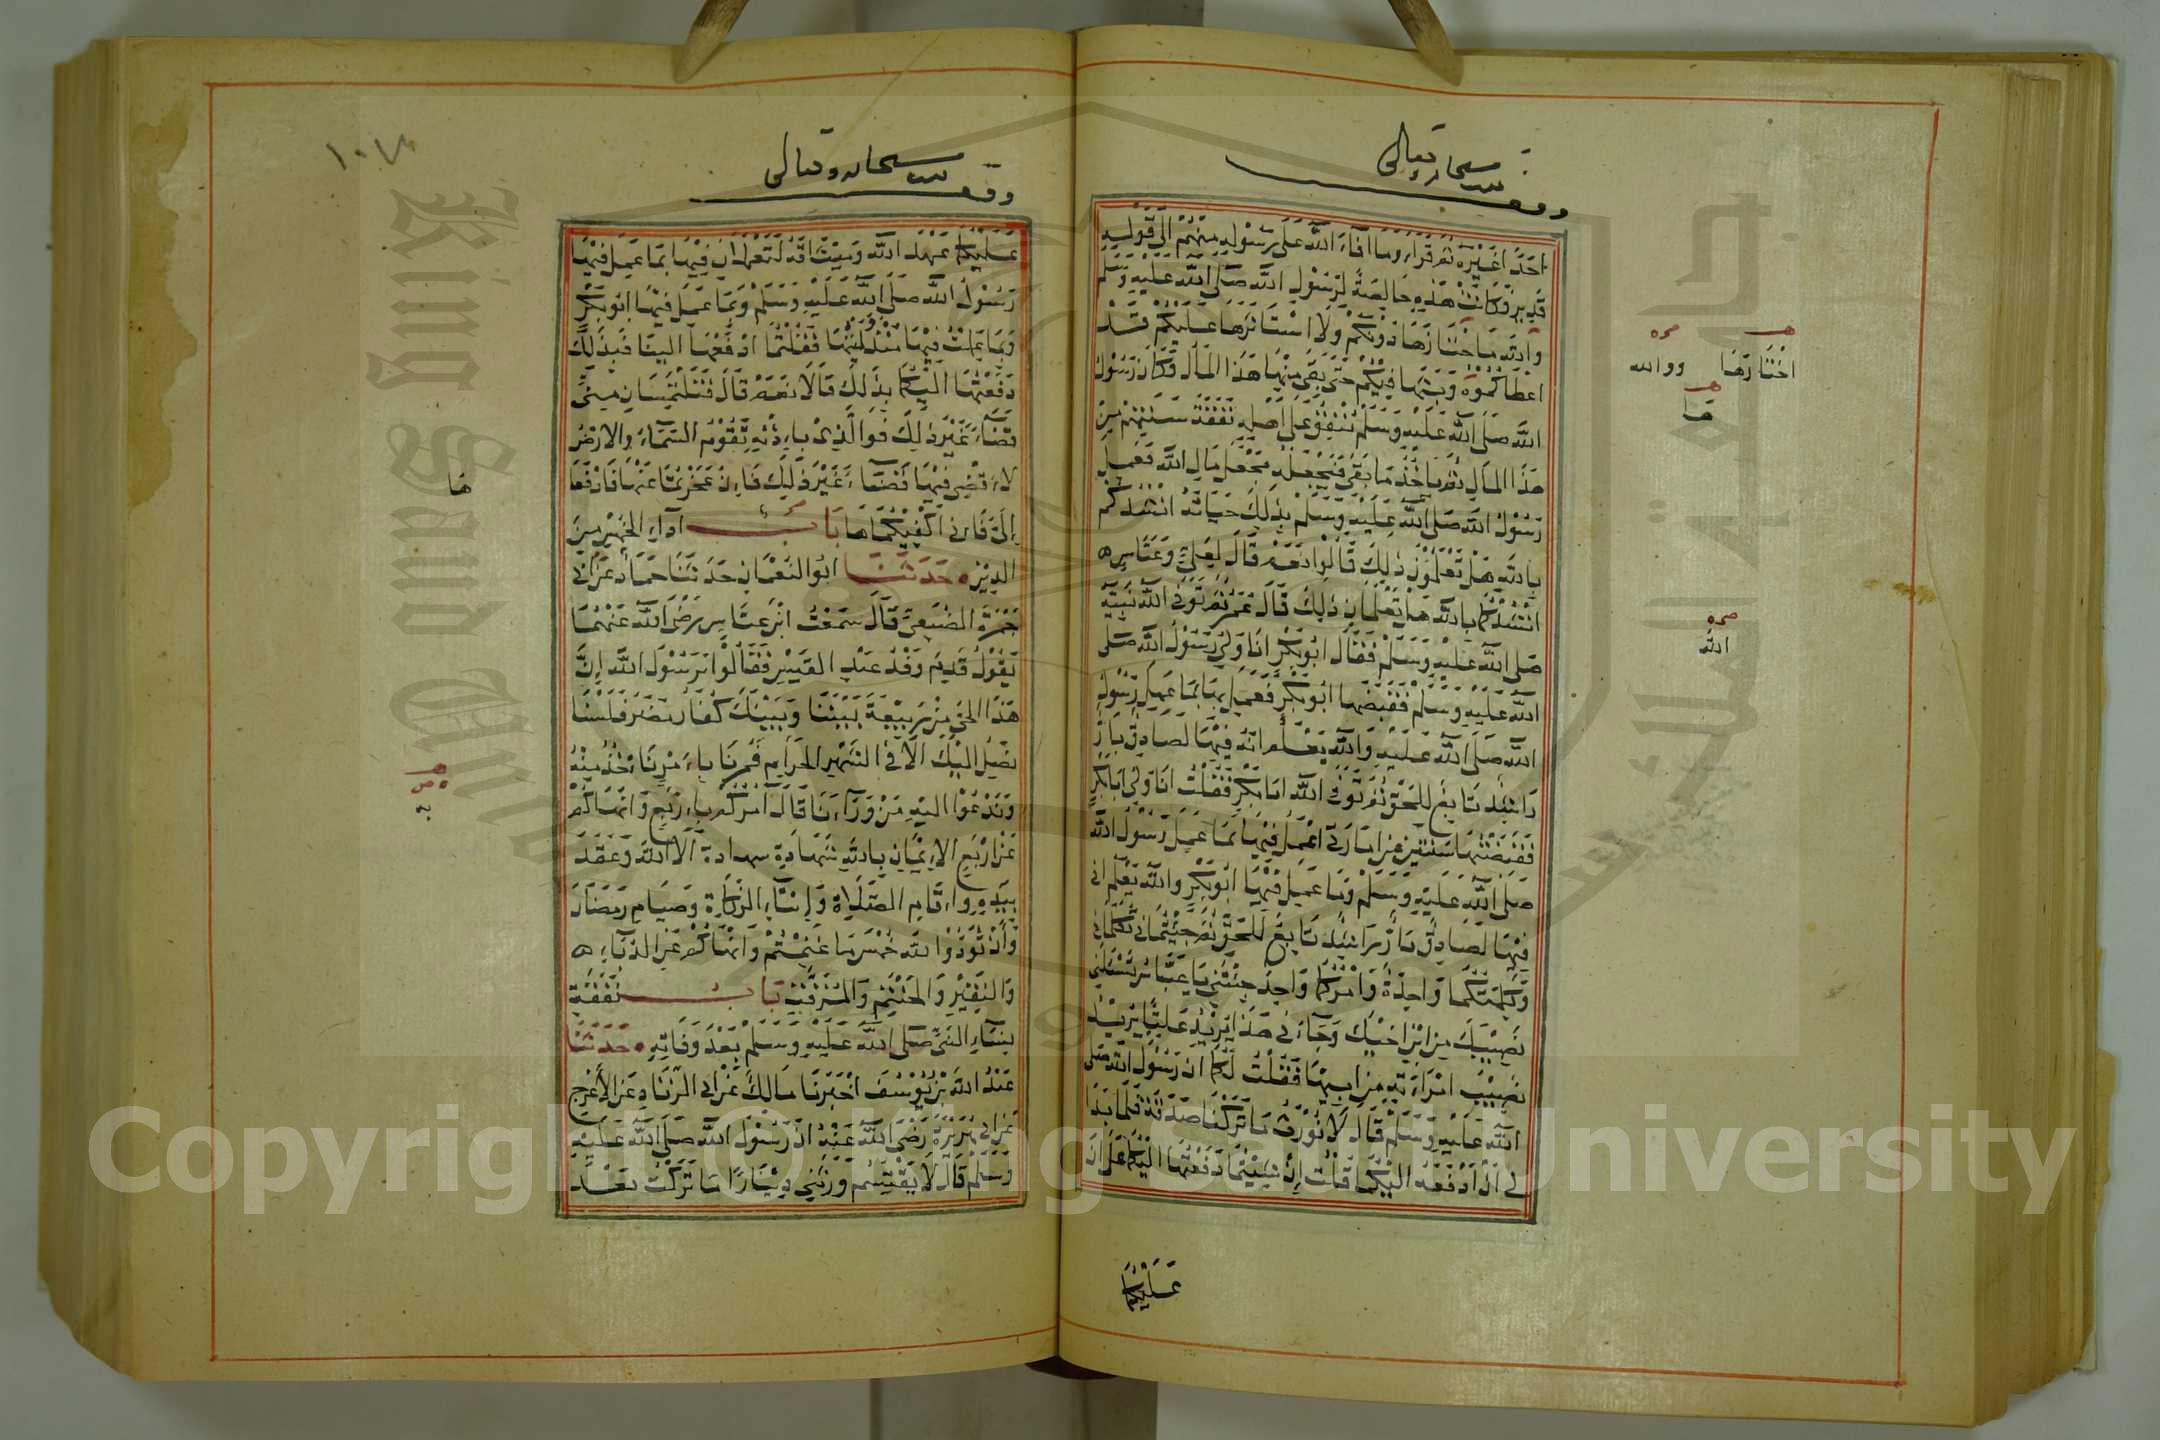 وقف لله سبحانه وتعالى
احدا غيره ثم قرا وما افاء الله على رسوله منهم الى قوله
قدير فكانت هذه خالصة لرسول الله صلى الله عليه وسلم
والله ما احتازها دونكم ولا استاثرها عليكم قد
اعطاكموه وبثها فيكم حتى بقي منها هذا المال فكان رسول
الله صلى الله عليه وسلم ينفق على اهله نفقة سنتهم من
هذا المال ثم ياخذ ما بقي فيجعله مجعل مال الله فعمل
رسول الله صلى الله عليه وسلم بذلك حياته انشدكم
بالله هل تعلمون ذلك قالوا نعم قال لعلي وعباس
انشدكما بالله هل تعلمان ذلك قال عمر ثم توفى الله نبيه
صلى الله عليه وسلم فقال ابو بكر انا ولي رسول الله صلى
الله عليه وسلم فقبضها ابو بكر فعمل بما عمل رسول
الله صلى الله عليه والله يعلم انه فيها لصادق بار
راشد تابع للحق ثم توفى الله ابا بكر فقلت انا ولي ابا بكر
فقبضتها سنتين من امارتي اعمل فيها بما عمل رسول الله
صلى الله عليه وسلم وما عمل فيها ابو بكر والله يعلم اني
فيها لصادق بار راشد تابع للحق ثم جئتماني تكلماني
وكلمتكما واحدة وامركما واحد جئتني يا عباس تسئلني
نصيبك من ابن اخيك وجاءني هذا يريد عليا يريد
نصيب امراته من ابيها فقلت لكما ان رسول الله صلى
الله عليه وسلم قال لا نورث ما تركنا صدقة فلما بدا
لي ان ادفعه اليكما قلت ان شئتما دفعتها اليكما على ان
عليكما
اختارها
ووالله
ها
الله
وقف لله سبحانه وتعالى
عليكما عهد الله وميثاقه لتعملان فيها بما عمل فيها
رسول الله صلى الله عليه وسلم وبما عمل فيها ابو بكر
وبما عملت فيها منذ وليتها فقلتما ادفعها الينا فبذلك
دفعتها اليكما بذلك قالا نعم قال فتلتمسان مني
قضاء غير ذلك فوالذي باذنه تقوم السماء والارض
لا اقضي فيها قضاء غير ذلك فان عجزتما عنها فادفعا
الي فاني اكفيكماها باب اداء الخمس من
الدين حدثنا ابو النعمان حدثنا حماد عن ابي
جمرة الضبعي قال سمعت ابن عباس رضى الله عنهما
يقول قدم وفد عبد القيس فقالوا يا رسول الله ان
هذا الحي من ربيعة بيننا وبينك كفار مضر فلسنا
نصل اليك الا في الشهر الحرام فمرنا بامر ناخذ منه
وندعوا اليه من وراءنا قال امركم باربع وانهاكم
عن اربع الايمان بالله شهادة شهادة الا الله وعقد
بيده واقام الصلاة وايتاء الزكاة وصيام رمضان
وان تؤدوا لله خمس ما غنمتم وانهاكم عن الدباء
والنقير والحنتم والمزفت باب نفقة
نساء النبي صلى الله عليه وسلم بعد وفاته حدثنا
عبد الله بن يوسف اخبرنا مالك عن ابي الزناد عن الاعرج
عن ابي هريرة رضى الله عنه ان رسول الله صلى الله عليه
وسلم قال لا يقتسم ورثتي دينارا ما تركت بعد
ها